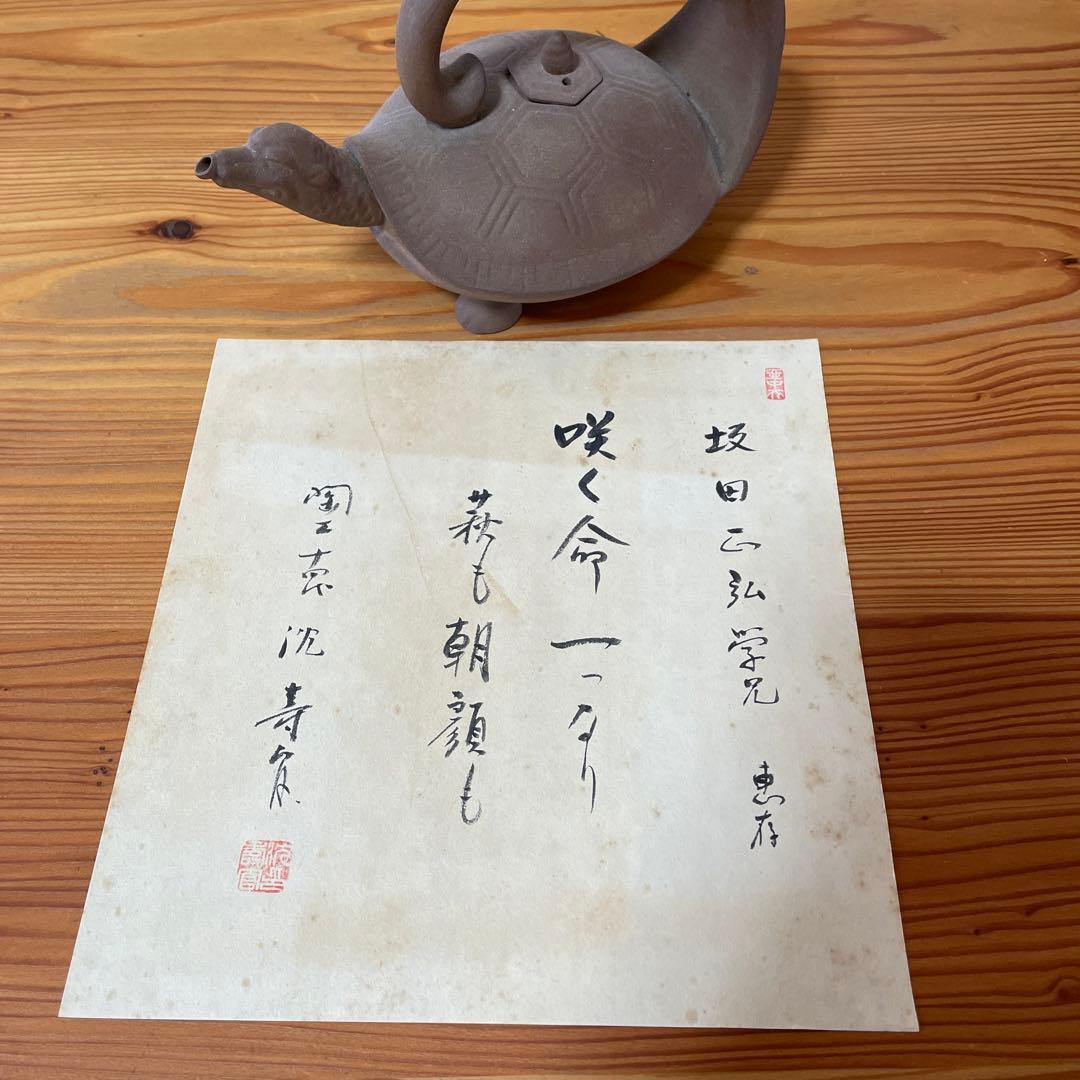 坂田正弘学兄 恵存
咲く命一つなり
萩も朝顔も
沈寿官